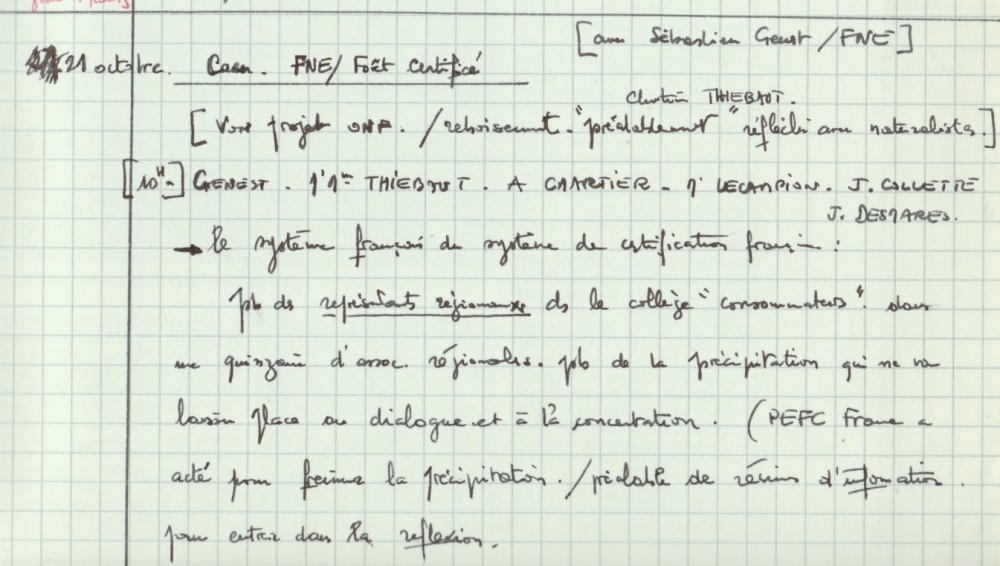 [avec Sébastien Genest / FNE]
21 octobre. Caen. FNE / Forêt certifiée
THIEBAUT.
[Voir projet ONF. / reboisement. "préalablement" réfléchi avec naturalistes.]
[10H-] GENEST. Mme THIEBAUT. A CHARTIER. M. LECAMPION. J. COLLETTE
J. DESMARES.
→ le système français du système de certification français :
pb ds représentants régionaux ds le collège "consommateurs". dans
une quinzaine d'assoc. régionales. pb de la précipitation qui ne va
laisser place au dialogue et à la concertation. (PEFC France a
acté pour freiner la précipitation. / préalable de réunions d'information.
pour entrer dans la réflexion.